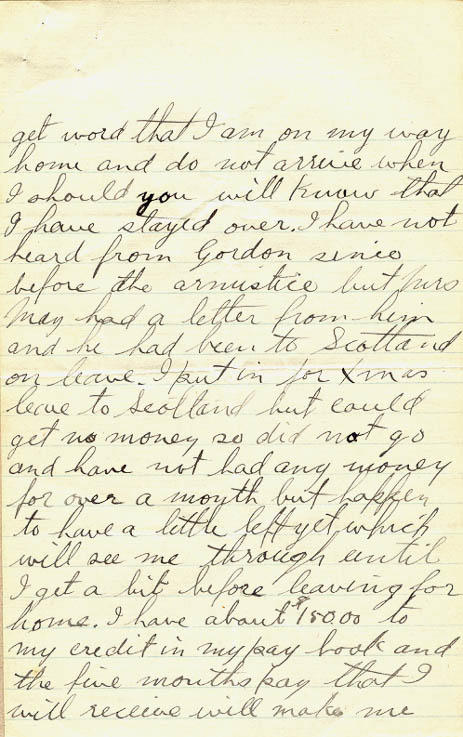 get word that I am on my way
home and do not arrive when
I should you will know that
I have stayed over. I have not
heard from Gordon since
before the armistice but Mrs
May had a letter from him
and he had been to Scotland
on leave. I put in for Xmas
leave to Scolland but could
get no money so did not go
and have not had any money
for over a month but happen
to have a little left yet, which
will see me through until
I get a bit before leaving for
home. I have about $150.00 to
my credit in my pay book and
the five months pay that I
will receive will make me